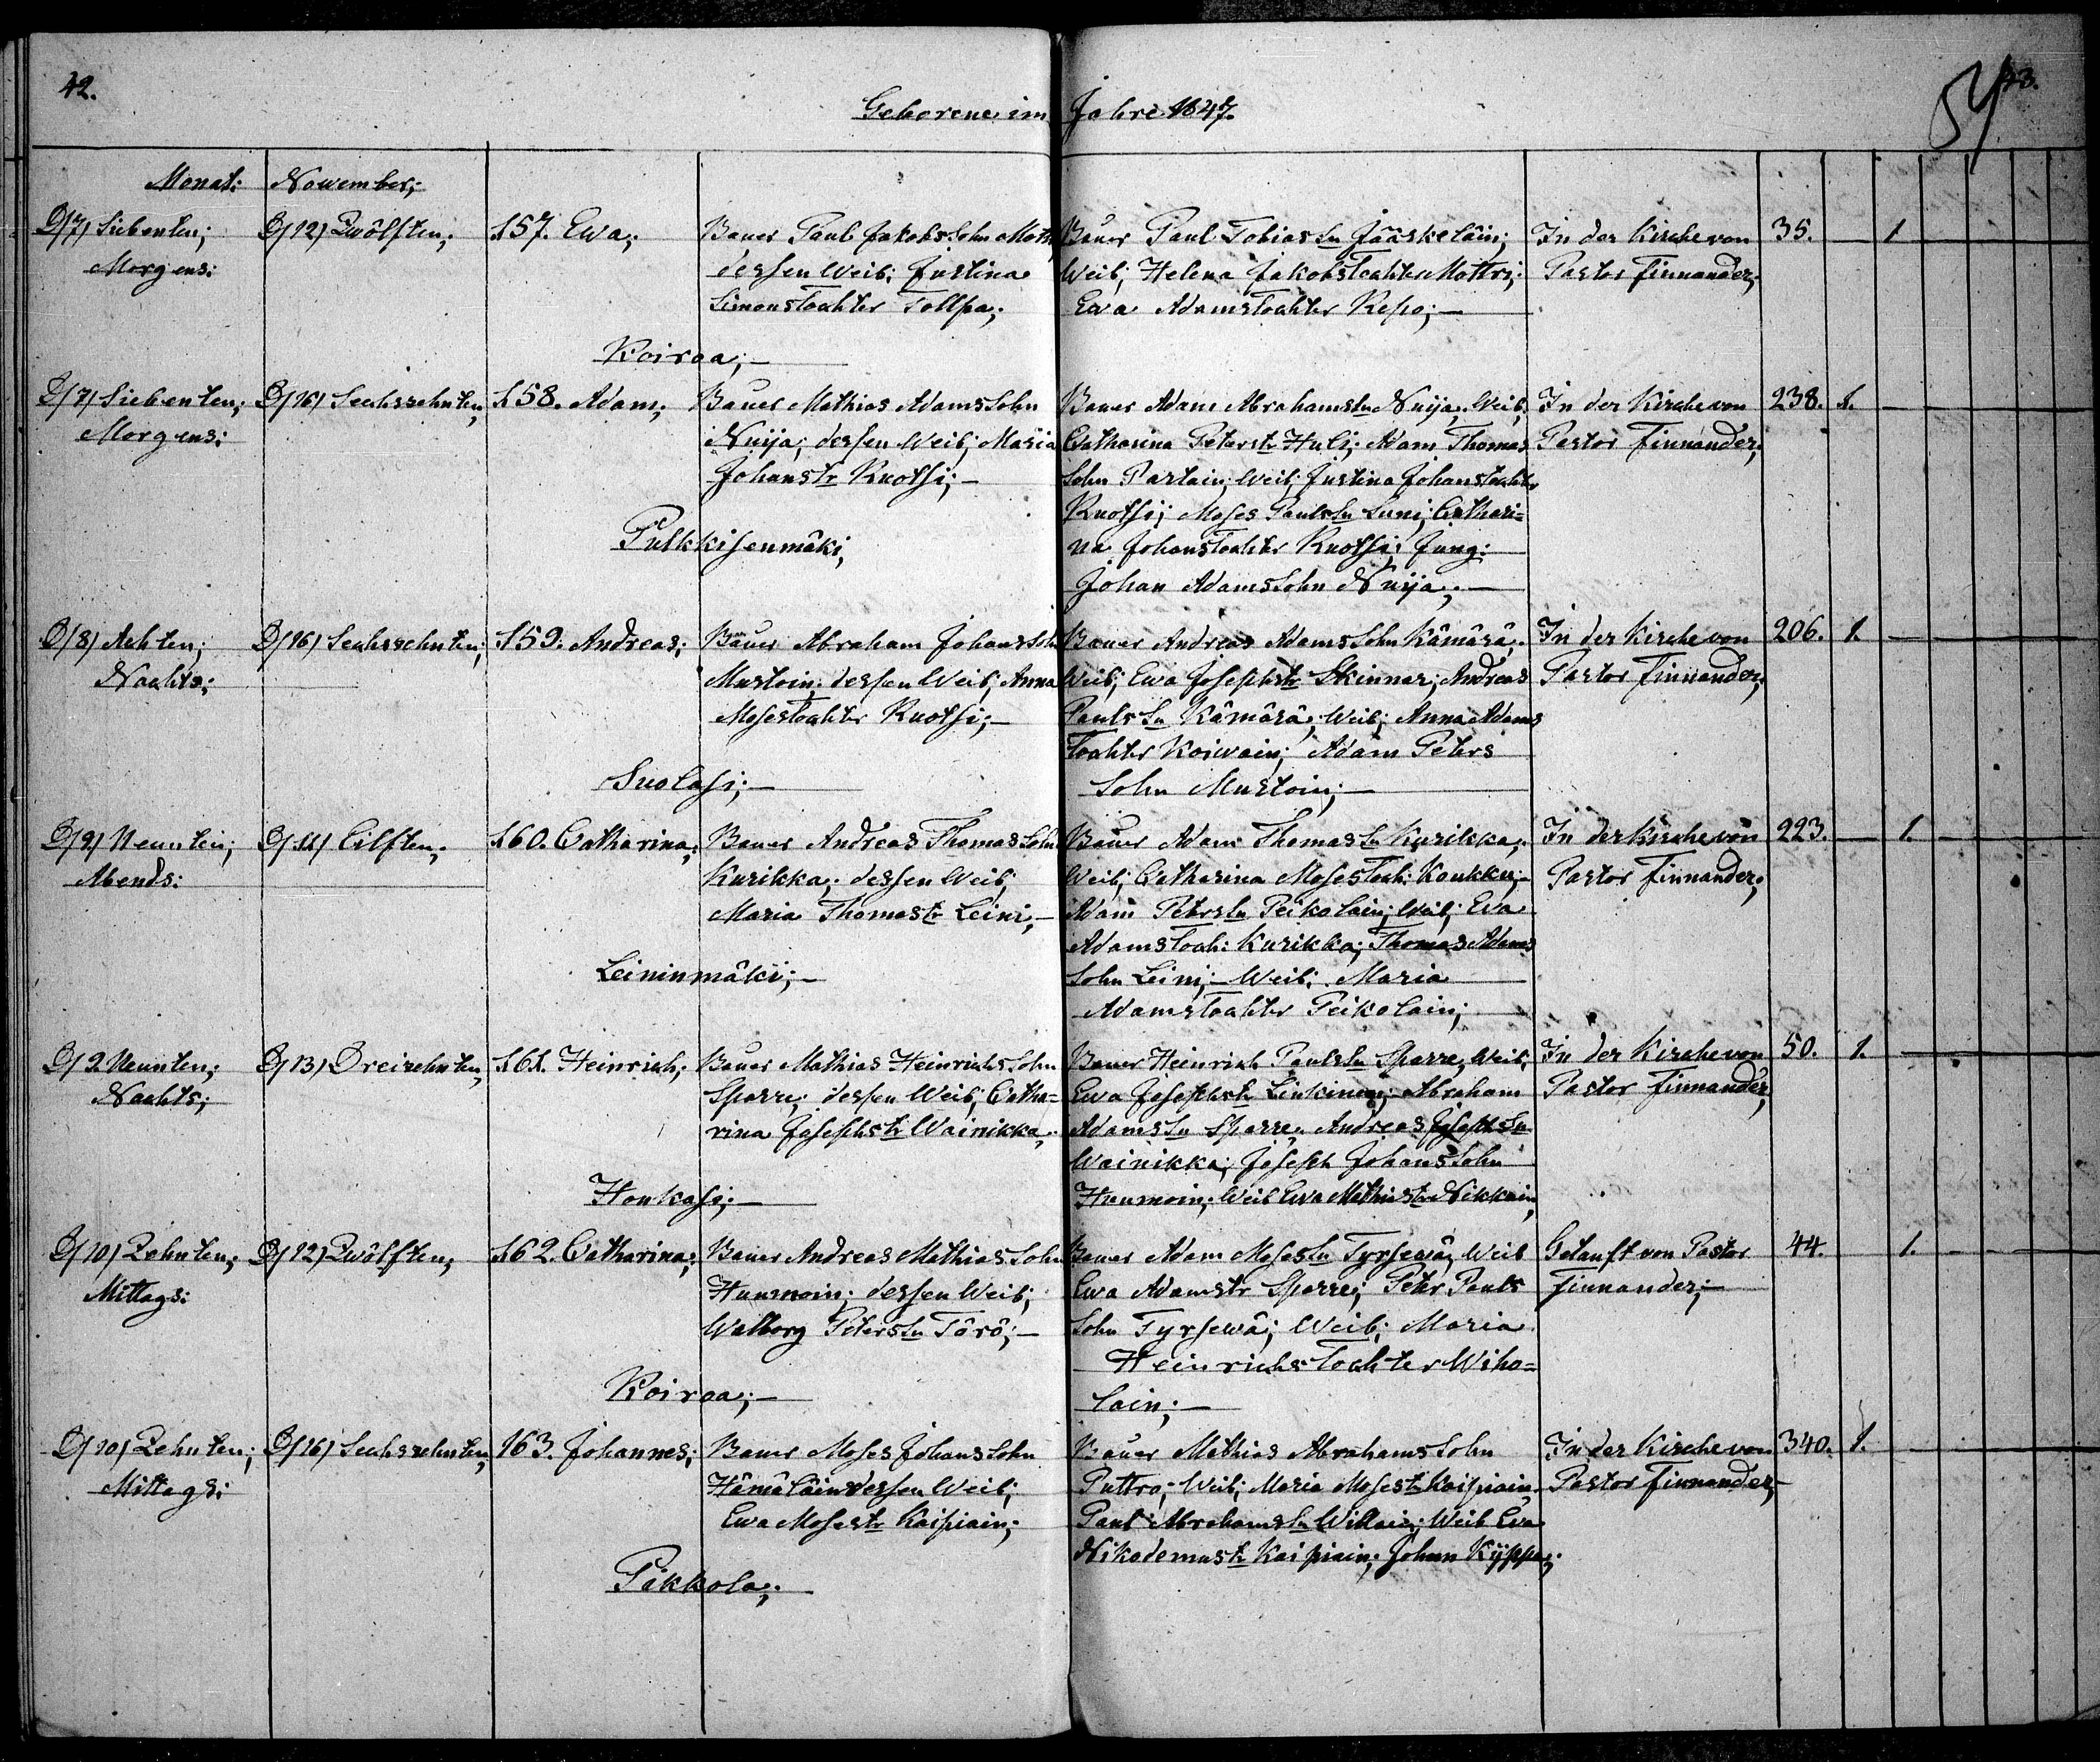 42.
43.
54
Geborene im Jahre 1847.
Monat: November;
D/7/ Siebenten; D/12/ Zwölften; 157. Ewa; Bauer Paul Jakobs Sohn Mottri Bauer Paul Tobias Sn Jääskeläin; In der Kirche von 35. — 1
Morgens: dessen Weib; Justina Weib; Helena Jakobstochter Mottri; Pastor Finnander;
Simonstochter Tollpa; Ewa Adamstochter Repo; —
Koiroa; —
D/7/ Siebenten; D/16/ Sechszehnten; 158. Adam; Bauer Mathias Adams Sohn Bauer Adam Abrahams Sn Nuija, Weib; In der Kirche von 238. 1. —
Morgens: Nuija; dessen Weib; Maria Catharina Peterstr Huli; Adam Thomas Pastor Finnander;
Johanstr Ruotsi; — Sohn Partain; Weib; Justina Johanstochter
Ruotsi; Moses Pauls Sn Suni; Cathari=
Pulkkisenmäki; na Johanstochter Ruotsi; Jung:
Johan Adamssohn Nuija; —
D/8/ Achten; D/16/ Sechszehnten; 159. Andreas; Bauer Abraham Johans Sohn Bauer Andreas Adams Sohn Kämärä; In der Kirche von 206. 1. —
Nachts; Mustoin; dessen Weib; Anna Weib; Ewa Josephstr Skinnar; Andreas Pastor Finnander;
Mosestochter Ruotsi; — Pauls Sn Kämärä; Weib; Anna Adams
Tochter Koiwain; Adam Peters
Suolasi; — Sohn Mustoin; —
D/9/ Neunten; D/11/ Eilften; 160. Catharina; Bauer Andreas Thomas Sohn Bauer Adam Thomas Sn Kurikka; In der Kirche von 223. — 1.
Abends: Kurikka; dessen Weib; Weib; Catharina Mosestoch: Koukku; — Pastor Finnander;
Maria Thomastr Leini; — Adam Peters Sn Peikolain; Weib; Ewa
Adamstoch: Kurikka; Thomas Adams
Leininmäki; — Sohn Leini; — Weib: Maria
Adamstochter Peikolain;
D/9. Neunten; D/13/ Dreizehnten; 161. Heinrich; Bauer Mathias Heinrichs Sohn Bauer Heinrich Pauls Sn Sparre, Weib; In der Kirche von 50. 1. —
Nachts; Sparre; dessen Weib; Catha= Ewa Josephstr Linkinen; Abraham Pastor Finnander;
rina Josephstr Wainikka; Adams Sn Sparre, Andreas Josephs Sn
Wainikka; Joseph Johans Sohn
Honkasi; — Hunmoin; Weib Ewa Mathiastr Nikkain;
D/10/ Zehnten; D/12/ Zwölften; 162. Catharina; Bauer Andreas Mathias Sohn Bauer Adam Moses Sn Tyrsewä, Weib Getauft von Pastor 44. 1.
Mittags: Hunmoin; dessen Weib; Ewa Adamstr Sparre; Peter Pauls Finnander; —
Walborg Peters Sn Törö; — Sohn Tyrsewä; Weib; Maria
Heinrichstochter Wiho=
Koiroa; — lain; —
D/10/ Zehnten; D/16/ Sechszehnten; 163. Johannes; Bauer Moses Johans Sohn Bauer Mathias Abrahams Sohn In der Kirche von 340. 1. —
Mittags: Hämäläin dessen Weib; Puttro; — Weib; Maria Mosestr Kaipiain; Pastor Finnander; —
Ewa Mosestr Kaipiain; Paul Abrahams Sn Willain; Weib Ewa
Nikodemustr Kaipiain; Johan Kyppa;
Pikkola;